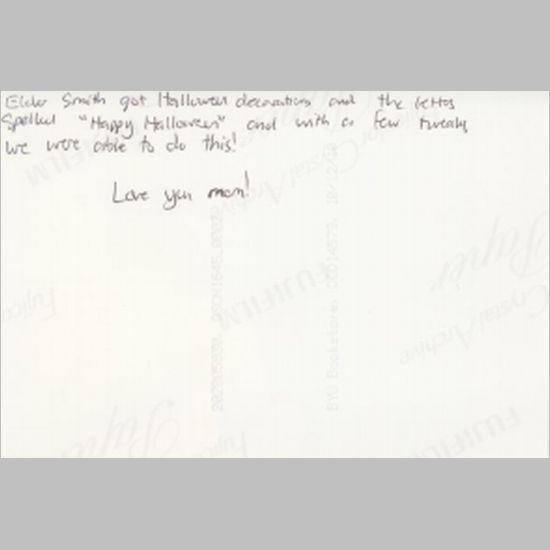 Elder Smith got Halloween decorations and the letters
Spelled "Happy Halloween" and with a few tweaks
we were able to do this!
Love you mom!
FUJIFILM
Crystal Archive
Paper
FUJIFILM
Fujicolor
Crystal Archive
Paper
FUJIFILM
BYU Bookstore